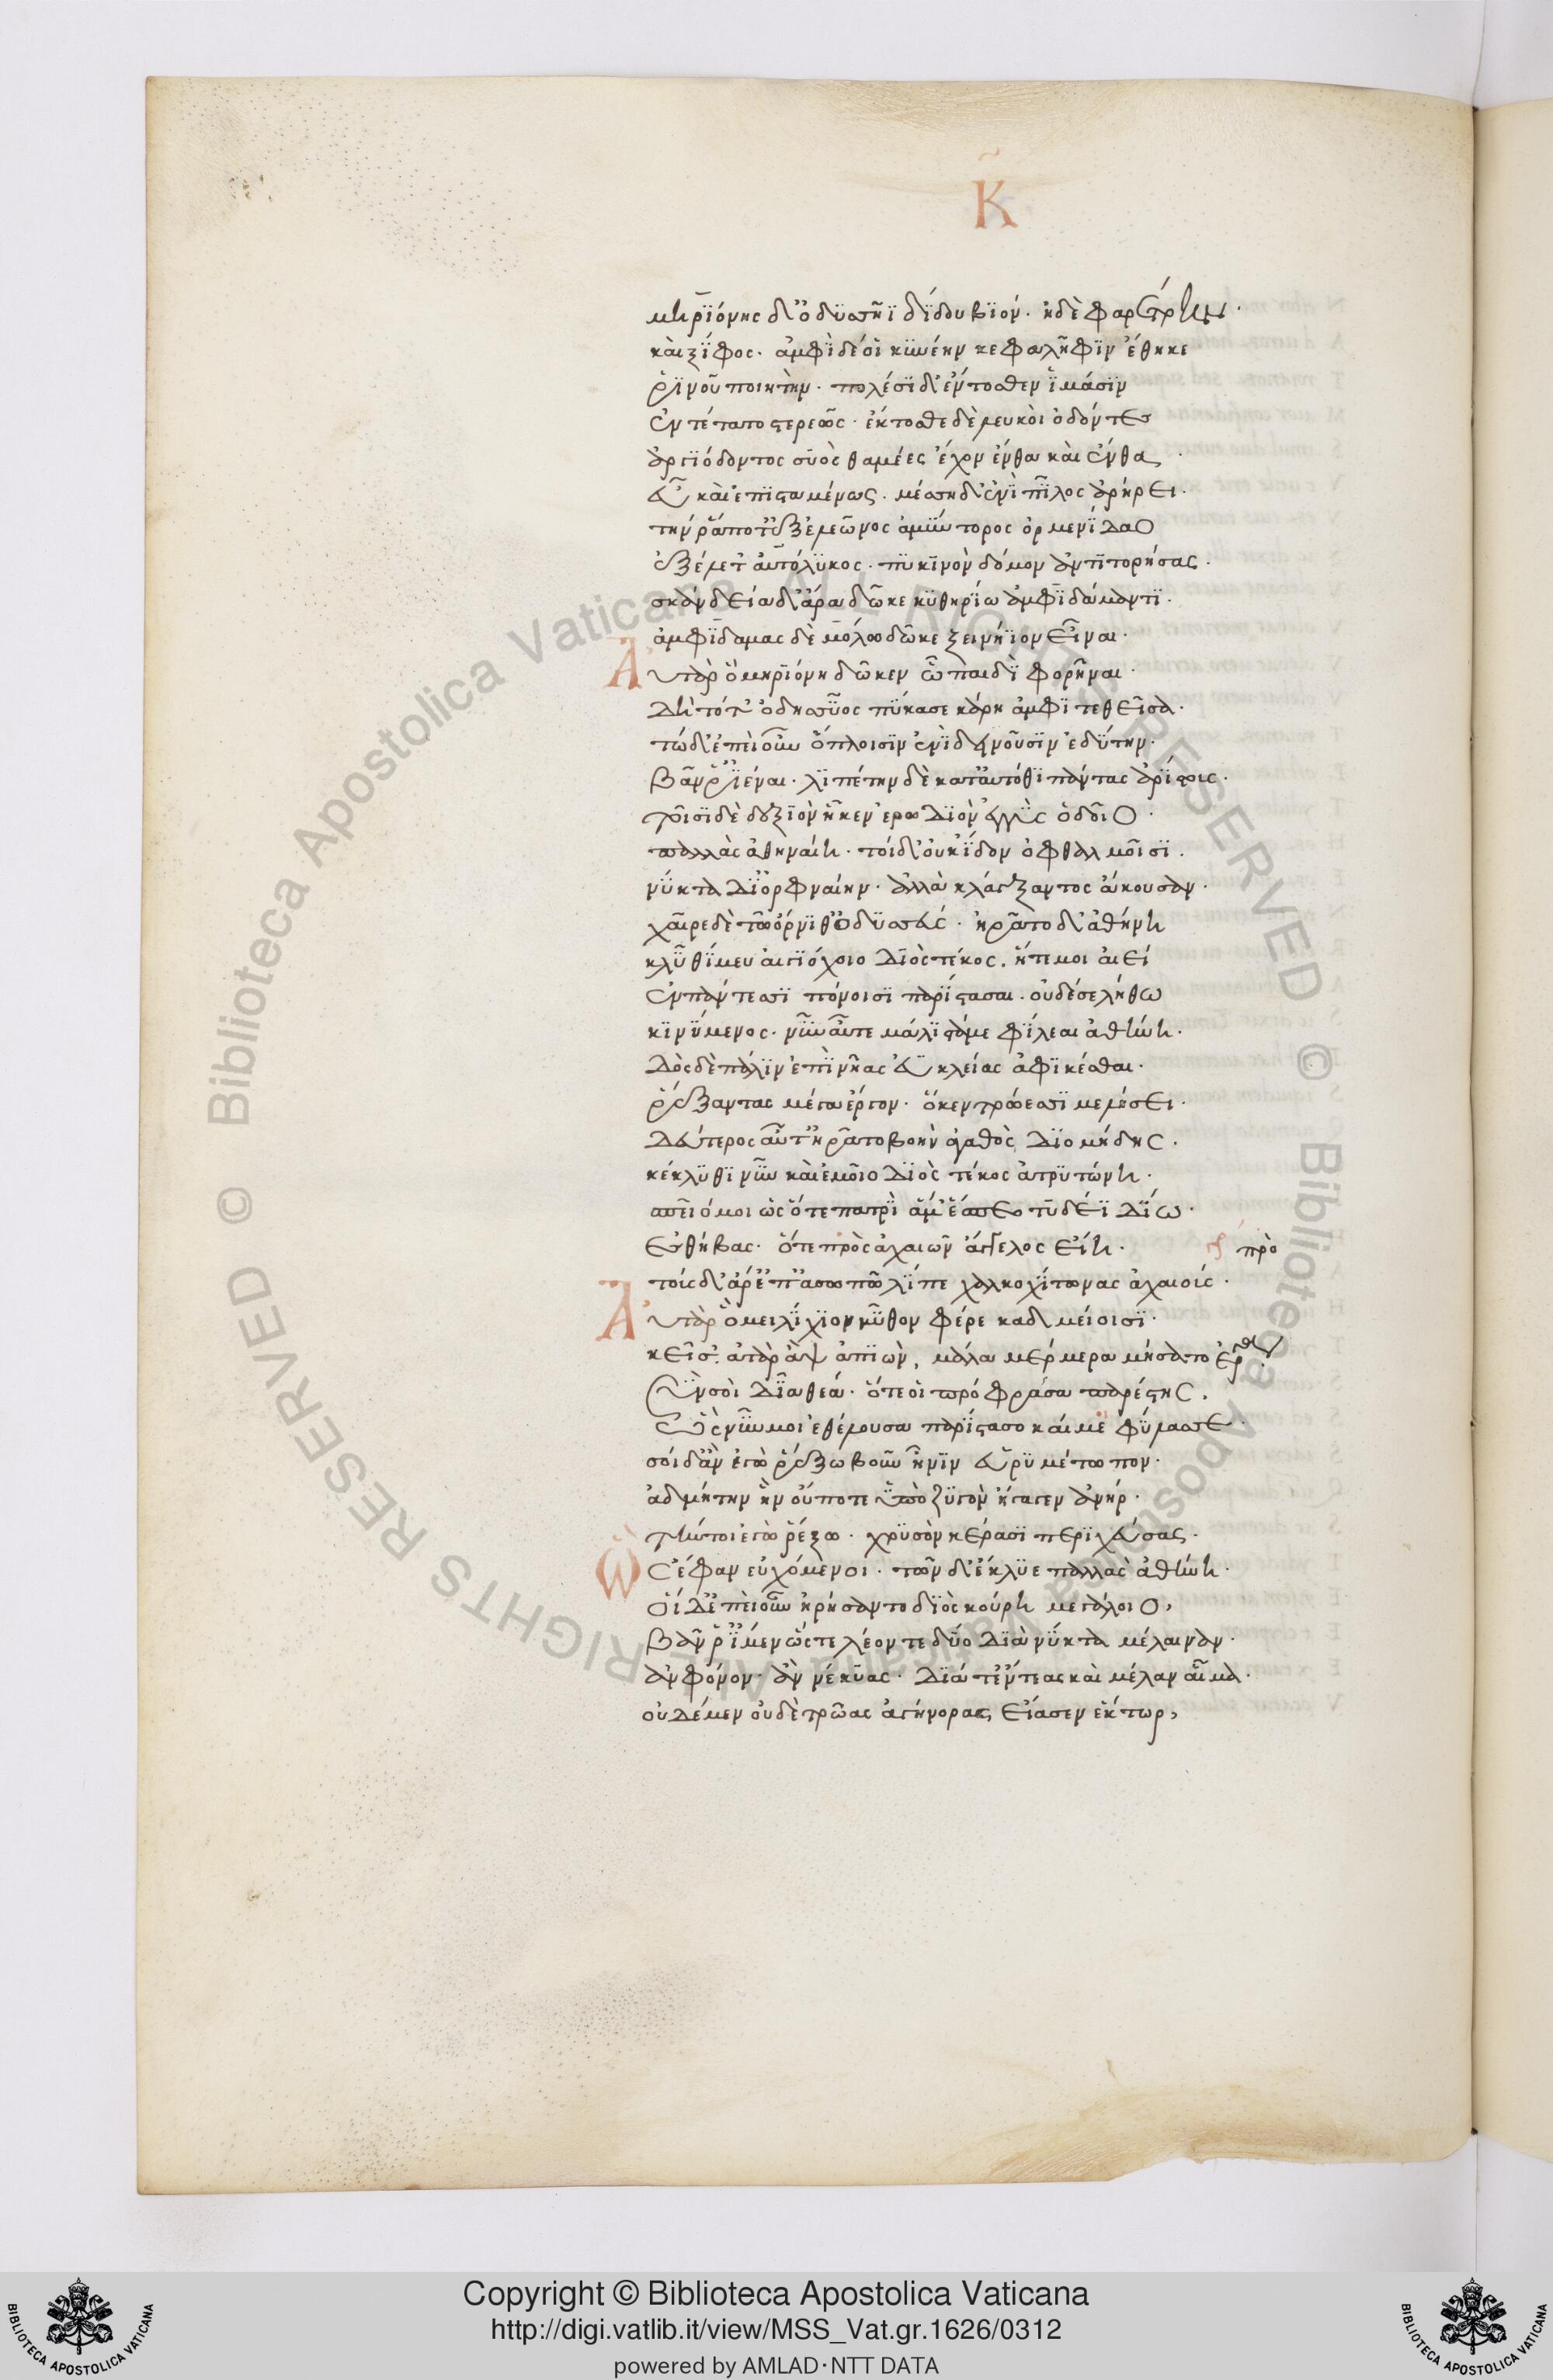 Κ
μηριόνης δ' ὀδυσῆϊ δίδου βιόν· ἠδὲ φαρέτρην·
καὶ ξίφος· ἀμφὶ δέ οἱ κυνέην κεφαλῆφιν ἔθηκε
ῥινοῦ ποιητὴν· πολέσι δ' ἔντοσθεν ἱμάσιν
ἐντέτατο στερεῶς· ἔκτοσθε δὲ λευκοὶ ὀδόντες
ἀργιόδοντος συὸς θαμέες ἔχον ἔνθα καὶ ἔνθα·
εὖ καὶ ἐπισταμένως· μέσση δ' ἐνὶ πῖλος ἀρήρει·
τήν ῥά ποτ' ἐξ ἐλεῶνος ἀμύντορος ὀρμενίδαο
ἐξέλετ' αὐτόλυκος· πυκινὸν δόμον ἀντιτορήσας·
σκάνδειαν δ' ἄρα δῶκε κυθηρίω ἀμφιδάμαντι·
ἀμφιδάμας δὲ μόλω δῶκε ξεινήϊον εἶναι·
Αὐτὰρ ὃ μηριόνη δῶκεν ᾧ παιδὶ φορῆναι·
δὴ τότ' ὀδησῦος πύκασε κάρη ἀμφιτεθεῖσα·
τώ δ' ἐπεὶ οὖν ὅπλοισιν ἐνὶ δεινοῦσιν ἐδύτην·
βάν ῥ' ἰέναι· λιπέτην δὲ κατ' αὐτόθι πάντας ἀρίστους·
τοῖσι δὲ δεξιὸν ἧκεν ἐρωδιὸν ἐγγὺς ὁδοῖο·
παλλὰς ἀθηναίη· τοὶ δ' οὐκ ἴδον ὀφθαλμοῖσι·
νύκτα δι' ὀρφναίην· ἀλλὰ κλάγξαντος ἄκουσαν·
χαῖρε δὲ τῶ ὄρνιθ' ὀδυσεύς· ἠρᾶτο δ' ἀθήνη
κλῦθί μευ αἰγιόχοιο διὸς τέκος· ἥτε μοι αἰεί
ἐν πάντεσσι πόνοισι παρίστασαι· οὐδέ σε λήθω
κινύμενος· νῦν αὖτε μάλιστά με φίλεαι ἀθήνη·
δὸς δὲ πάλιν ἐπὶ νῆας εὐκλείας ἀφικέσθαι·
ῥέξαντας μέγα ἔργον· ὅ κεν τρώεσσι μελήσει·
δεύτερος αὖτ' ἠρᾶτο βοὴν ἀγαθὸς διομήδης·
κέκλυθι νῦν καὶ ἐμοῖο διὸς τέκος ἀτρυτώνη·
σπεῖό μοι ὡς ὅτε πατρὶ ἅμ' ἕσπεο τυδέϊ δίω·
ἐς θήβας· ὅτε πρὸς ἀχαιῶν ἄγγελος εἴη·
πρὸ
τοὺς δ' ἄρ' ἐπ' ἀσωπῶ λίπε χαλκοχίτωνας ἀχαιούς·
Αὐτὰρ ὃ μειλίχιον μῦθον φέρε καδμείοισι·
κεῖσ'· ἀτὰρ ἂψ ἀπιὼν, μάλα μέρμερα μήσατο ἔργα
σὺν σοὶ δῖα θεά· ὅτε οἱ πρόφρασσα παρέστης·
ὣς νῦν μοι ἐθέλουσα παρίστασο καί με φύλασσε·
σοὶ δ' ἂν ἐγὼ ῥέξω βοῦν ἦνιν εὐρυμέτωπον·
ἀδμήτην ἣν οὔποτε ὑπὸ ζυγὸν ἤγαγεν ἀνήρ·
τήν τοι ἐγὼ ῥέξω· χρυσὸν κέρασι περιχεύσας·
Ὣς ἔφαν εὐχόμενοι· τῶν δ' ἔκλυε παλλὰς ἀθήνη·
οἱ δ' ἐπεὶ οὖν ἠρήσαντο διὸς κούρη μεγάλοιο,
βάν ῥ' ἴμεν ὥστε λέοντε δύο διὰ νύκτα μέλαιναν·
ἂν φόνον· ἂν νέκυας· διά τ' ἔντεα καὶ μέλαν αἷμα·
οὐδὲ μὲν οὐδὲ τρῶας ἀγήνορας εἴασεν ἕκτωρ,
Copyright © Biblioteca Apostolica Vaticana
http://digi.vatlib.it/view/MSS_Vat.gr.1626/0312
powered by AMLAD·NTT DATA